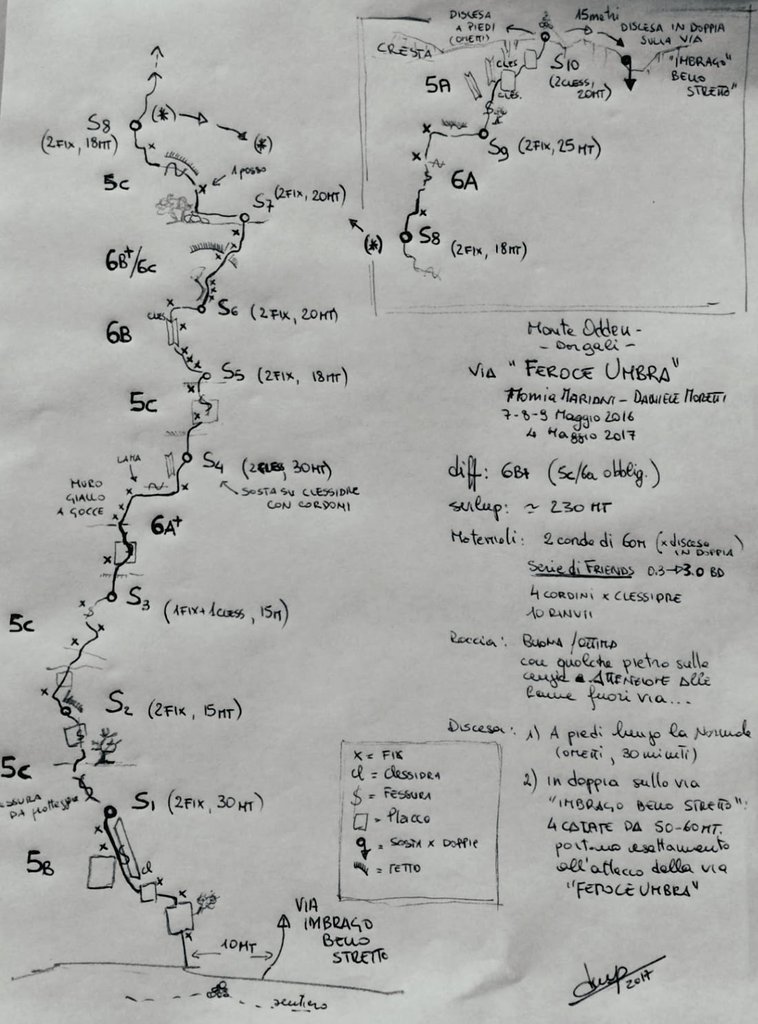 DISCESA
A PIEDI
(OMETTI)
15 metri
DISCESA IN DOPPIA
SULLA VIA
"IMBRAGO
BELLO
STRETTO"
CRESTA
CLES
S10
(2 CLESS,
20MT)
5A
CLES.
S9 (2 FIX, 25 MT)
6A
S8
(2 FIX, 18 MT)
(*)
S8
(2 FIX, 18MT)
(*)
(*)
1 passo
5c
S7 (2 FIX, 20MT)
6B+/6c
S6 (2 FIX, 20MT)
CLES
6B
S5 (2 FIX, 18 MT)
5c
LAMA
S4 (2 CLES, 30MT)
SOSTA SU CLESSIDRE
CON CORDONI
MURO
GIALLO
A GOCCE
6A+
S3 (1 FIX + 1 CLESS, 15 MT)
5c
S2 (2 FIX, 15 MT)
5c
DA proteggere
S1 (2 FIX, 30 MT)
5B
cl
VIA
IMBRAGO
BELLO
STRETTO
10 MT
sentiero
Monte Oddeu -
- Dorgali -
VIA "FEROCE UMBRA"
MARIANI - DANIELE MORETTI
7-8-9 Maggio 2016
4 Maggio 2017
diff: 6B+ (5c/6a obblig.)
svilup: ≃ 230 MT
Materiali: 2 corde di 60m (x discesa
IN DOPPIA)
Serie di FRIENDS 0.3→3.0 BD
4 CORDINI x CLESSIDRE
10 RINVII
Roccia: BUONA / OTTIMA
con qualche pietra sulle
cenge e ATTENZIONE ALLE
lame fuori via...
Discesa: 1) A piedi lungo la Normale
(OMETTI, 30 minuti)
2) in doppia sulla via
"IMBRAGO BELLO STRETTO":
4 CALATE DA 50-60MT.
portano esattamente
all'attacco della via
"FEROCE UMBRA"
x = FIX
cl = Clessidra
= Fessura
= Placca
= SOSTA x DOPPIE
= TETTO
2017